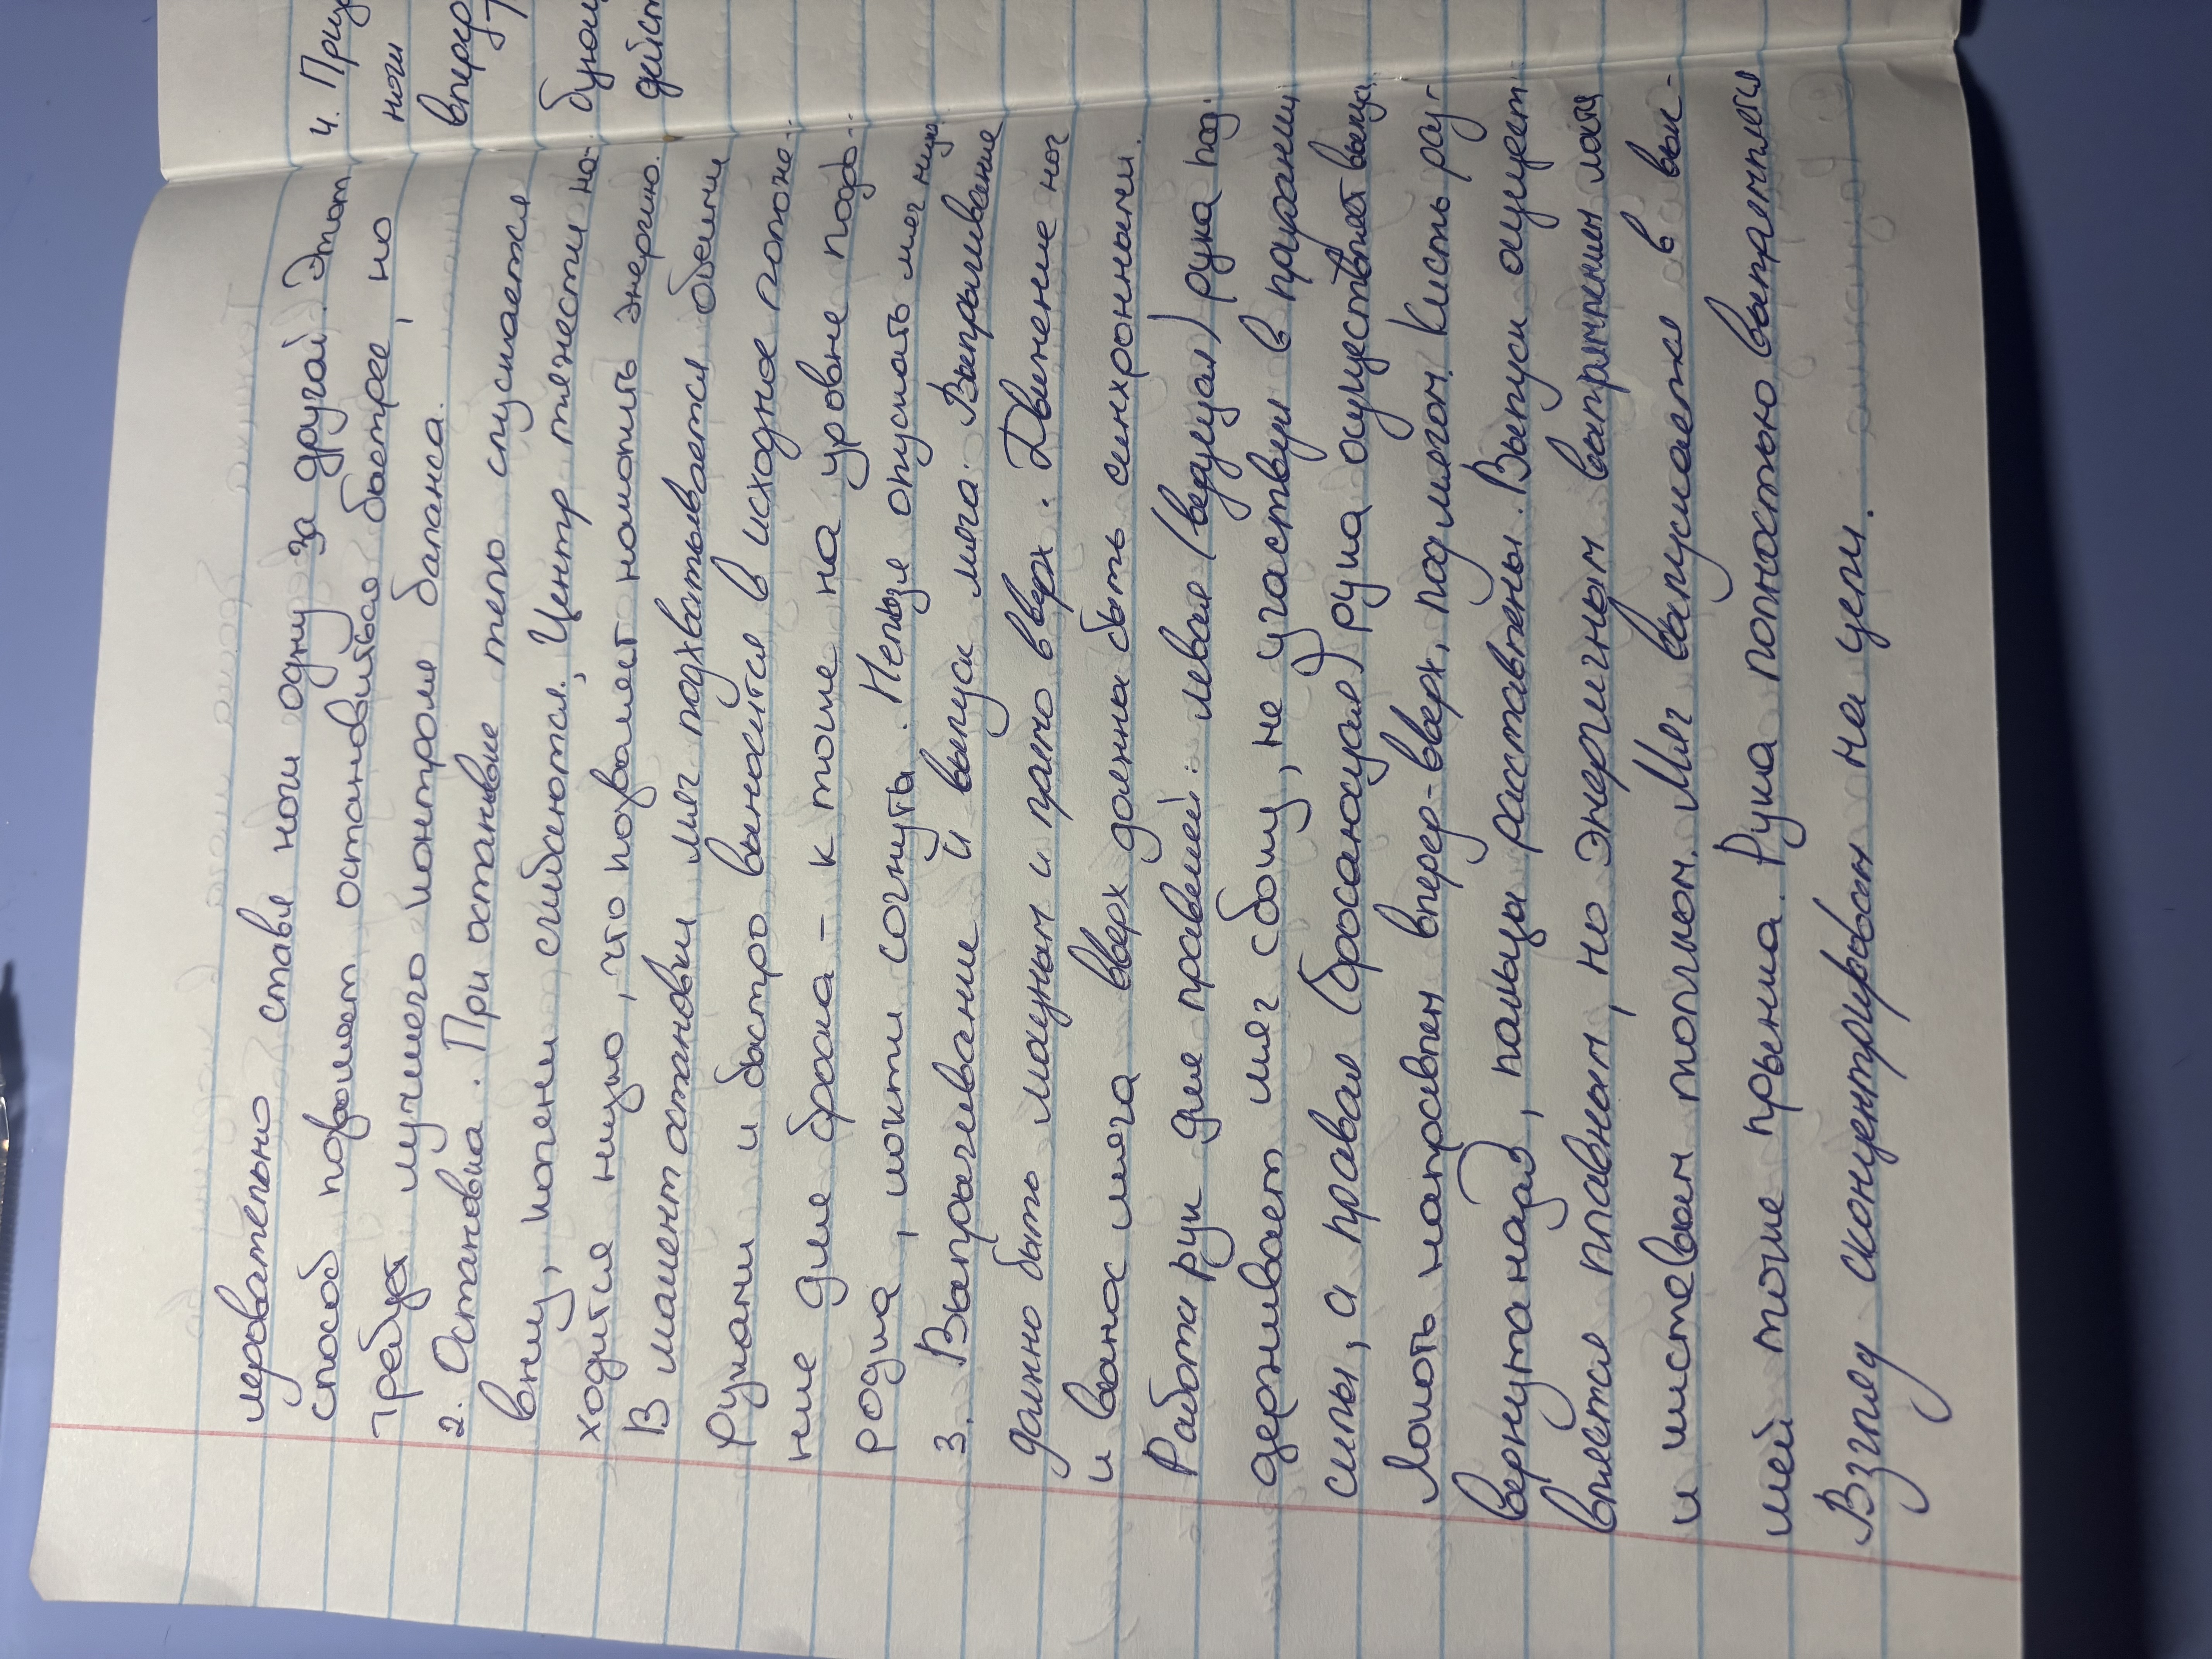 довательно ставя ноги одну за другой. Этот
способ позволяет остановиться быстрее, но
требует лучшего контроля баланса.
2. Остановка. При остановке тело опускается
вниз, колени сгибаются. Центр тяжести на-
ходится низко, что позволяет накопить энергию.
В момент остановки мяч подхватывается обеими
руками и быстро выносится в исходное положе-
ние для броска - к точке на уровне подбо-
родка, локти согнуты. Нельзя опускать мяч ниже
3. Выпрыгивание и выпуск мяча. Выпрыгивание
должно быть мощным и прямо вверх. Движение ног
и вынос мяча вверх должны быть синхронными.
Работа рук для правшей: левая (ведущая) рука под-
держивает мяч сбоку, не участвуя в придании
силы, а правая (бросающая) рука осуществляет выпуск
Локоть направлен вперед-вверх, под мячом. Кисть раз-
вернута назад, пальцы расставлены. Выпуск осущест-
вляется плавным, но энергичным выпрямлением локтя
и кистевым толчком. Мяч выпускается в выс-
шей точке прыжка. Рука полностью выпрямляется
Взгляд сконцентрирован на цели.
4. Приз
ноги
вперед
бующ
дейст